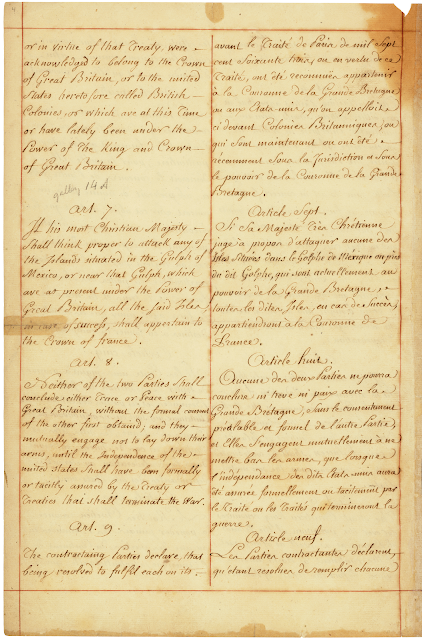 or in virtue of that Treaty, were
acknowledged to belong to the Crown
of Great Britain, or to the united
States heretofore called British
Colonies, or which are at this Time
or have lately been under the
Power of The King and Crown
of Great Britain.
galley 14 A
Art. 7.
If his most Christian Majesty
Shall think proper to attack any of
the Islands situated in the Gulph of
Mexico, or near that Gulph, which
are at present under the Power of
Great Britain, all the said Isles,
in case of success, shall appertain to
the Crown of france.
Art. 8.
Neither of the two Parties shall
conclude either Truce or Peace with
Great Britain, without the formal consent
of the other first obtain'd; and they
mutually engage not to lay down their
arms, until the Independence of the
united states shall have been formally
or tacitly assured by the Treaty or
Treaties that shall terminate the War.
Art. 9.
The contracting Parties declare, that
being resolved to fulfil each on its
avant le Traité de Paris de mil Sept
cent soixante trois, ou en vertu de ce
Traité, ont été reconnües appartenir
à la Couronne de la Grande Bretagne,
ou aux Etats unis, qu'on appelloit
ci devant Colonies Britanniques, ou
qui sont maintenant ou ont été
recemment sous la Jurisdiction et sous
le pouvoir de la Couronne de la Grande
Bretagne.
Article Sept.
Si Sa Majesté Très Chrétienne
juge à propos d'attaquer aucune des
Isles situées dans le Golphe de Méxique ou près
du dit Golphe, qui sont actuellement au
pouvoir de la Grande Bretagne,
toutes les dites Isles, en cas de Succès,
appartiendront à la Couronne de
France.
Article huit.
Aucune des deux Parties ne pourra
conclure ni treve ni paix avec la
Grande Bretagne, sans le consentement
préalable et formel de l'autre Partie,
et Elles s'engagent mutuellement à ne
mettre bas les armes, que lorsque
l'indépendance des dits Etats unis aura
été assurée formellement ou tacitement par
le Traité ou les Traités qui termineront la
guerre.
Article neuf.
Les Parties contractantes déclarent,
qu'étant resolües de remplir chacune